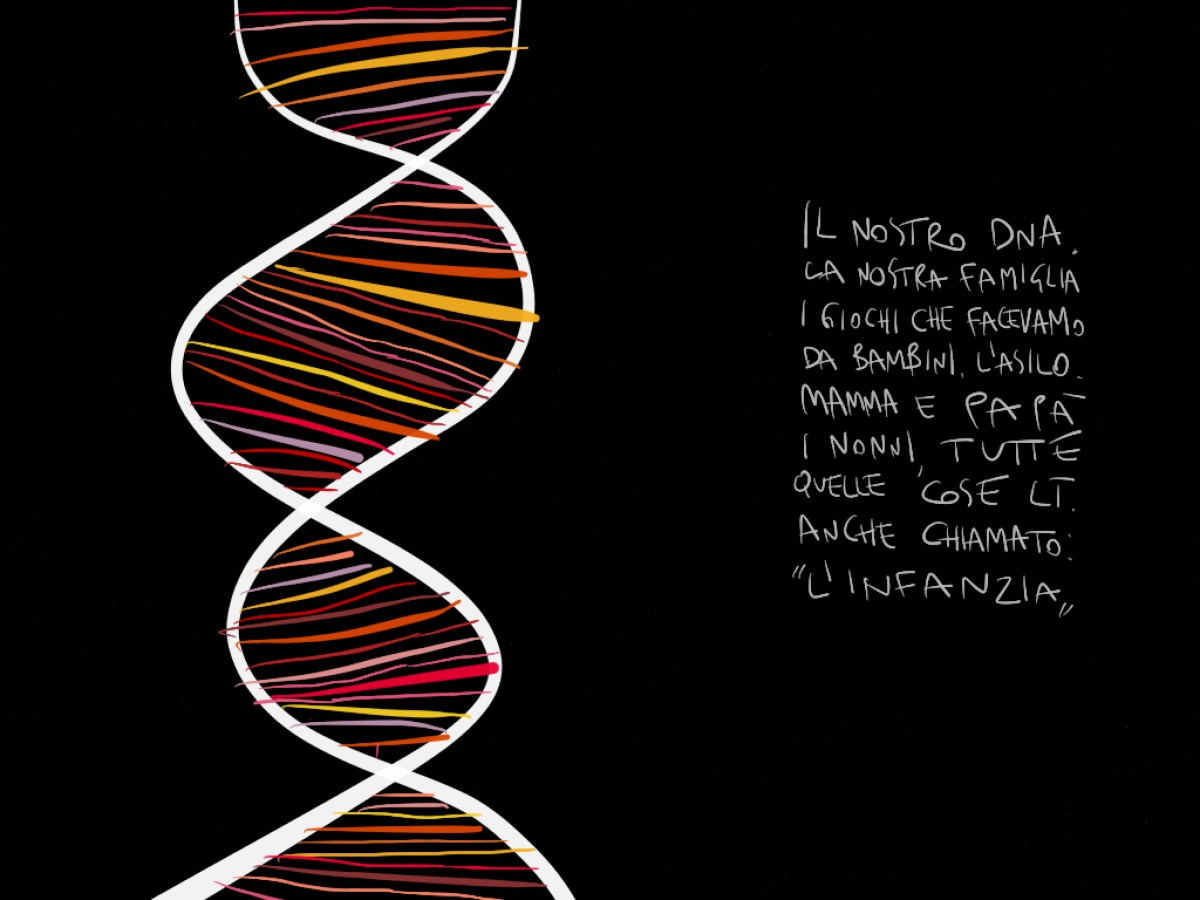 IL NOSTRO DNA.
LA NOSTRA FAMIGLIA
I GIOCHI CHE FACEVAMO
DA BAMBINI. L'ASILO.
MAMMA E PAPÀ
I NONNI, TUTTE
QUELLE COSE LÌ.
ANCHE CHIAMATO:
"L'INFANZIA„